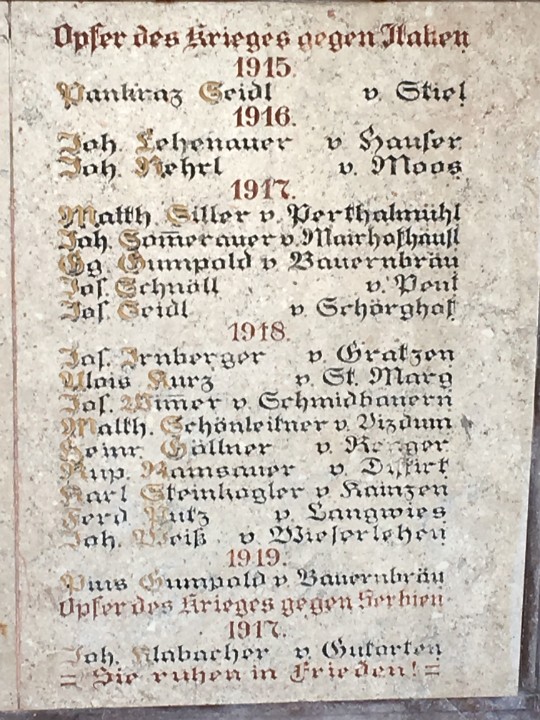 Opfer des Krieges gegen Italien
1915.
Pankraz Seidl v. Stiel
1916.
Joh. Lehenauer v Hauser
Joh. Nehrl v. Moos
1917.
Matth. Siller v. Perthalmühl
Joh. Som̄erauer v. Mairhofhäusl
Gg. Gumpold v Bauernbräu
Jos. Schnöll v. Pont
Jos. Seidl v Schörghof
1918.
Jos. Irnberger v. Gratzen
Alois Kurz v. St. Marg
Jos. Wim̄er v. Schmidbauern
Matth. Schönleitner v. Vizdum
Heinr. Göllner v.
Rup. Ramsauer v.
Karl Steinkogler v Kainzen
Ferd Putz v. Langwies
Joh. Weiß v Wieserlehen
1919.
Pius Gumpold v. Bauernbräu
Opfer des Krieges gegen Serbien
1917.
Joh. Klabacher v. Gutorten
= Sie ruhen in Frieden! =